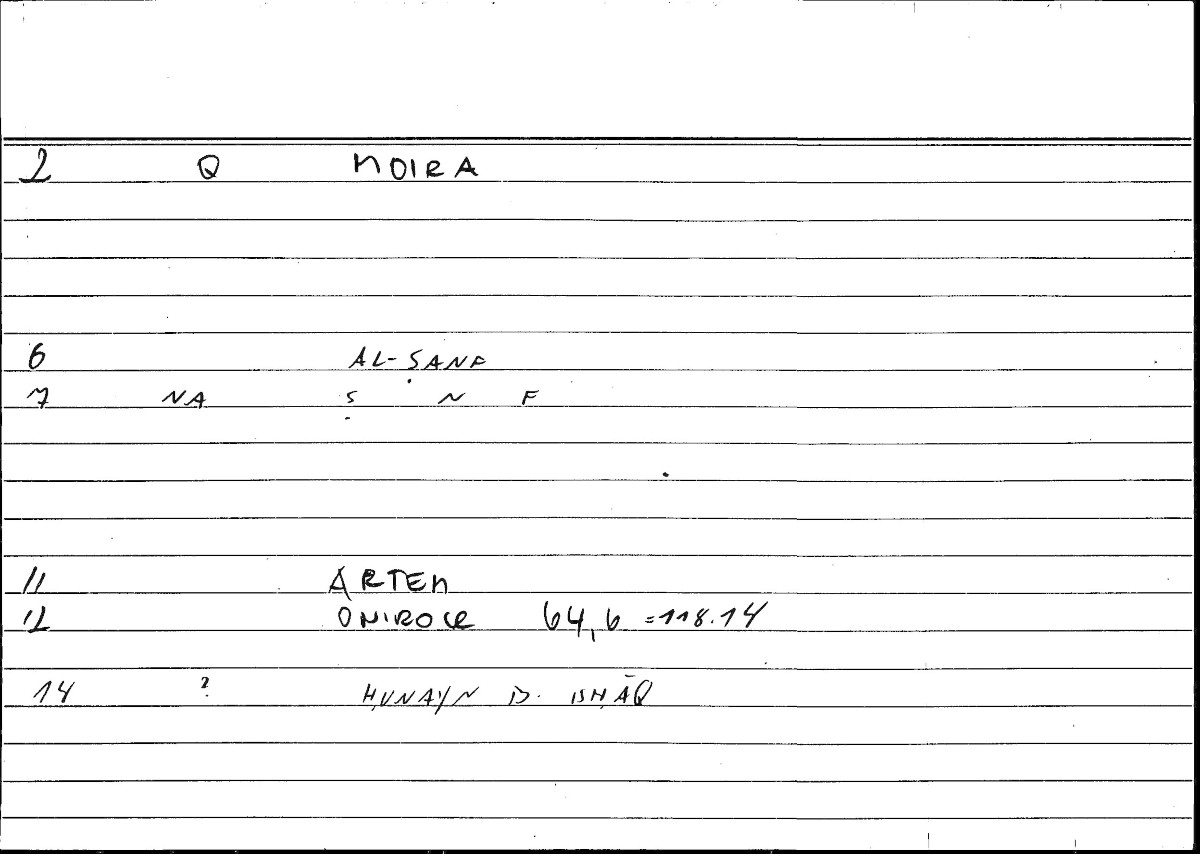 2 Q MOIRA
6 AL-ṢANF
7 NA Ṣ N F
11 ARTEM
12 ONIROCR 64,6 =118.14
14 ? ḤUNAYN B. ISḤĀQ